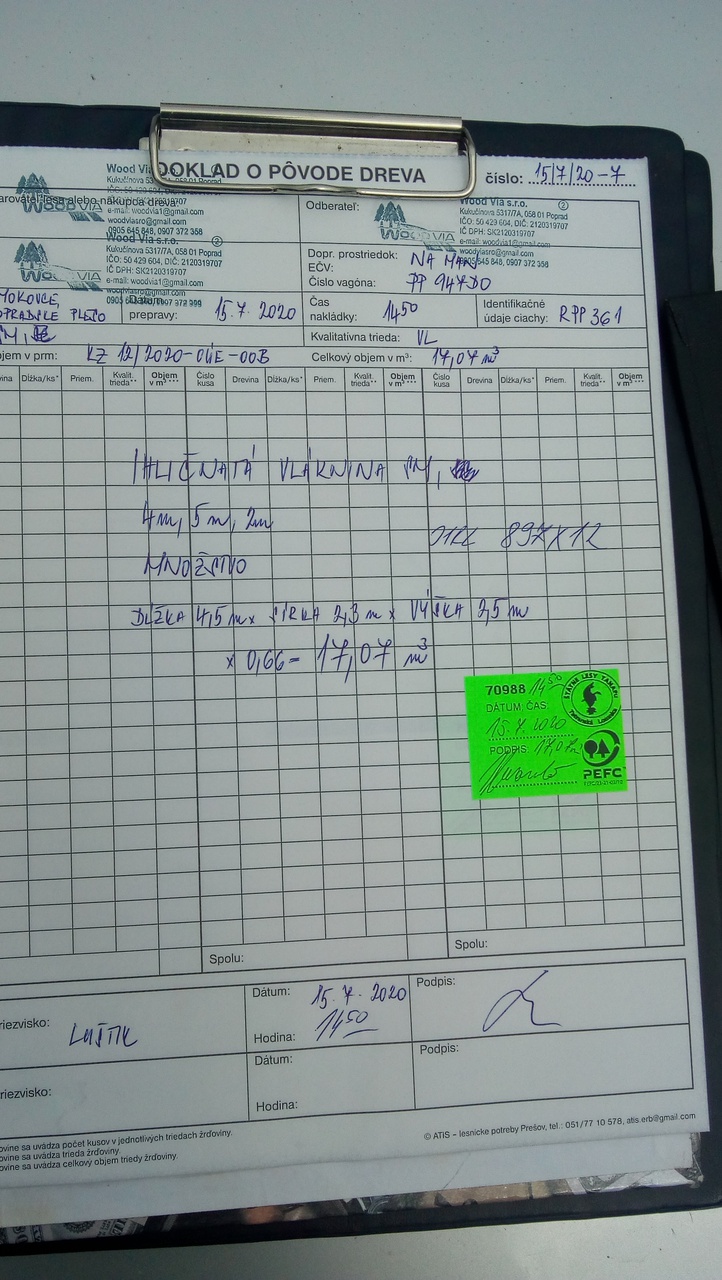 DOKLAD O PÔVODE DREVA
číslo: 15/7/20-7
Wood Via s.r.o.
Kukučínova 5317/7A, 058 01 Poprad
IČO: 50 429 604, DIČ: 2120319707
IČ DPH: SK2120319707
e-mail: woodvia1@gmail.com
woodviasro@gmail.com
0905 645 848, 0907 372 358
WOOD VIA
Wood Via s.r.o. 2
Kukučínova 5317/7A, 058 01 Poprad
IČO: 50 429 604, DIČ: 2120319707
IČ DPH: SK2120319707
e-mail: woodvia1@gmail.com
woodviasro@gmail.com
WOOD VIA
Odberateľ:
Wood Via s.r.o. 2
Kukučínova 5317/7A, 058 01 Poprad
IČO: 50 429 604, DIČ: 2120319707
IČ DPH: SK2120319707
e-mail: woodvia1@gmail.com
WOOD VIA
Dopr. prostriedok: NA
EČV:
Číslo vagóna: PP 947DO
Dátum prepravy: 15.7.2020
Čas nakládky: 14 50
Identifikačné údaje ciachy: RPP 361
Kvalitatívna trieda: VL
objem v prm: KZ 12/2020-OÚE-00B
Celkový objem v m³: 17,07 m³
Dĺžka/ks* Priem. Kvalit. trieda** Objem v m³*** Číslo kusa Drevina Dĺžka/ks* Priem. Kvalit. trieda** Objem v m³*** Číslo kusa Drevina Dĺžka/ks* Priem. Kvalit. trieda** Objem v m³***
IHLIČNATÁ VLÁKNINA SM,
4m, 5m, 2m
897X12
MNOŽSTVO
DĹŽKA 4,5 m x ŠÍRKA 2,3 m x VÝŠKA 2,5 m
x 0,66 = 17,07 m³
70988 14 50
ŠTÁTNE LESY TANAPU
Tatranská Lomnica
DÁTUM, ČAS:
15.7.2020
PODPIS:
PEFC
Spolu:
Spolu:
Dátum: 15.7.2020
Podpis:
Hodina: 14 50
Dátum:
Podpis:
Hodina:
© ATIS – lesnicke potreby Prešov, tel.: 051/77 10 578, atis.erb@gmail.com
sa uvádza počet kusov v jednotlivých triedach žrďoviny.
sa uvádza trieda žrďoviny.
sa uvádza celkový objem triedy žrďoviny.